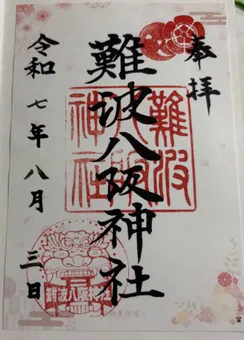 奉拝
難波八阪神社
令和七年八月三日
難波八阪神社
難波八阪神社